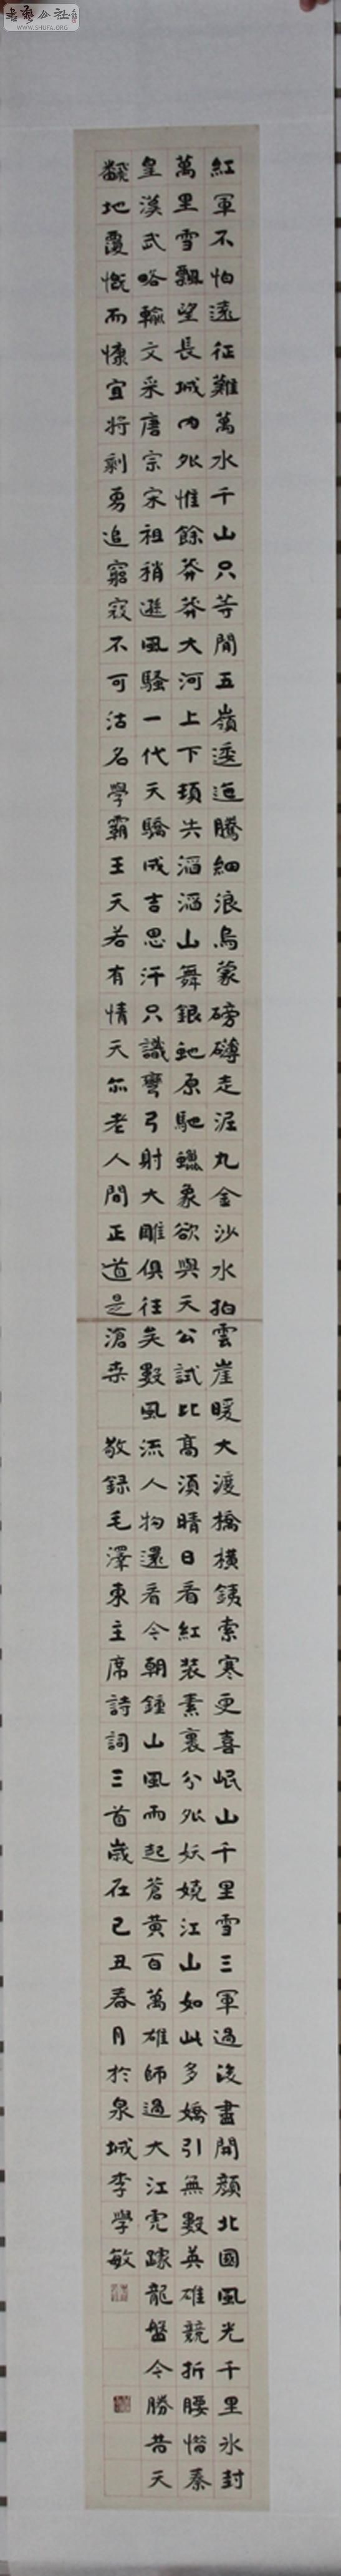 書藝公社
WWW.SHUFA.ORG
紅軍不怕遠征難萬水千山只等閒五嶺逶迤騰細浪烏蒙磅礴走泥丸金沙水拍雲崖暖大渡橋橫鐵索寒更喜岷山千里雪三軍過後盡開顏北國風光千里冰封
萬里雪飄望長城內外惟餘莽莽大河上下頓失滔滔山舞銀蛇原馳蠟象欲與天公試比高須晴日看紅裝素裹分外妖嬈江山如此多嬌引無數英雄競折腰惜秦
皇漢武略輸文采唐宗宋祖稍遜風騷一代天驕成吉思汗只識彎弓射大雕俱往矣數風流人物還看今朝鍾山風雨起蒼黃百萬雄師過大江虎踞龍盤今勝昔天
翻地覆慨而慷宜將剩勇追窮寇不可沽名學霸王天若有情天亦老人間正道是滄桑 敬録毛澤東主席詩詞三首歲在己丑春月於泉城李學敏